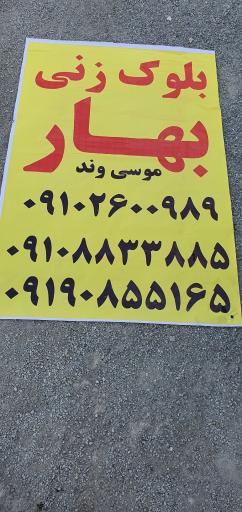 بلوک زنی
بهار
موسی وند
۰۹۱۰۲۶۰۰۹۸۹
۰۹۱۰۸۸۳۳۸۸۵
۰۹۱۹۰۸۵۵۱۶۵